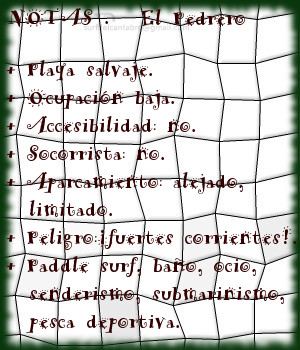 NOTAS : El Pedrero
+ Playa salvaje.
+ Ocupación baja.
+ Accesibilidad: no.
+ Socorrista: no.
+ Aparcamiento: alejado,
limitado.
+ Peligro:¡fuertes corrientes!
+ Paddle surf, baño, ocio,
senderismo, submarinismo,
pesca deportiva.